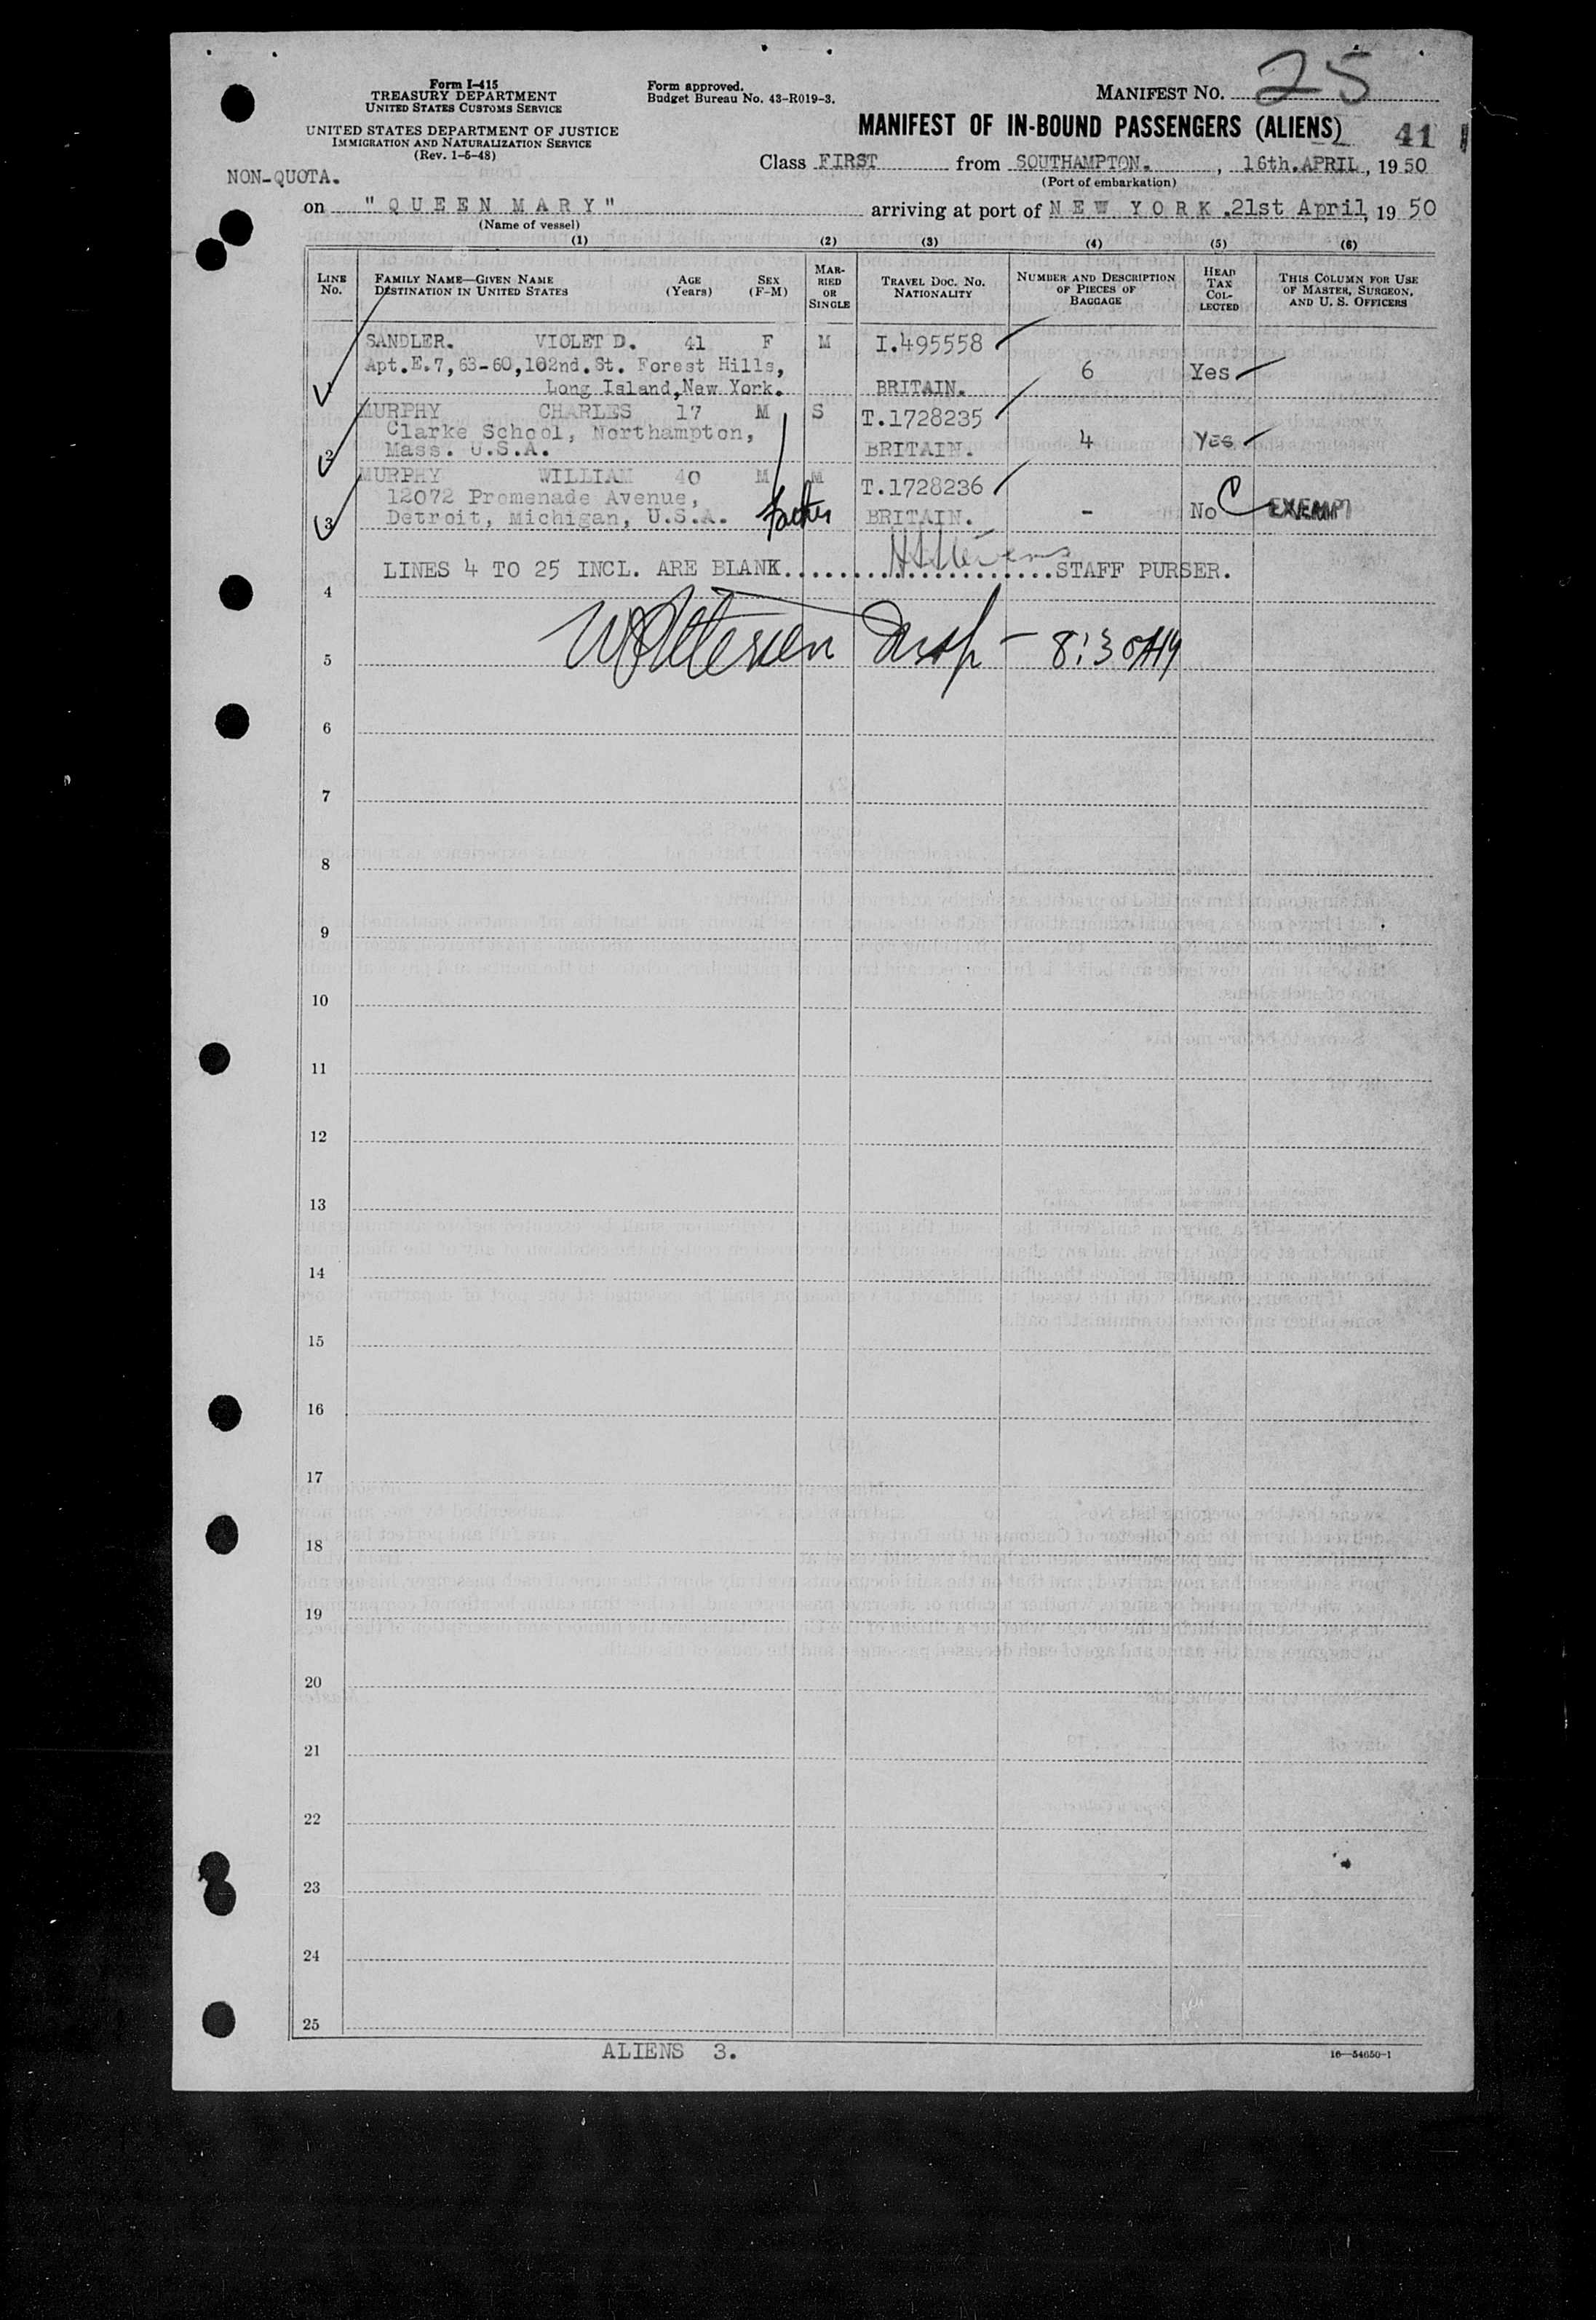 Form I-415
TREASURY DEPARTMENT
UNITED STATES CUSTOMS SERVICE
UNITED STATES DEPARTMENT OF JUSTICE
IMMIGRATION AND NATURALIZATION SERVICE
(Rev. 1-5-48)
Form approved.
Budget Bureau No. 43-R019-3.
MANIFEST NO. 25
MANIFEST OF IN-BOUND PASSENGERS (ALIENS) 41
NON-QUOTA.
Class FIRST from SOUTHAMPTON. , 16th.APRIL, 1950
(Port of embarkation)
on "QUEEN MARY" arriving at port of NEW YORK.21st April, 1950
(Name of vessel)
(1) (2) (3) (4) (5) (6)
LINE NO. FAMILY NAME—GIVEN NAME DESTINATION IN UNITED STATES AGE (Years) SEX (F-M) MARRIED OR SINGLE TRAVEL DOC. NO. NATIONALITY NUMBER AND DESCRIPTION OF PIECES OF BAGGAGE HEAD TAX COLLECTED THIS COLUMN FOR USE OF MASTER, SURGEON, AND U. S. OFFICERS
SANDLER. VIOLET D. 41 F M I.495558
Apt.E.7,63-60,102nd.St. Forest Hills, 6 Yes
1 Long Island,New York. BRITAIN.
MURPHY CHARLES 17 M S T.1728235
Clarke School, Northampton, 4 Yes
2 Mass. U.S.A. BRITAIN.
MURPHY WILLIAM 40 M M T.1728236
12072 Promenade Avenue,
3 Detroit, Michigan, U.S.A. father BRITAIN. - No C EXEMPT
LINES 4 TO 25 INCL. ARE BLANK......................STAFF PURSER.
4
8:30AM
5
6
7
8
9
10
11
12
13
14
15
16
17
18
19
20
21
22
23
24
25
ALIENS 3.
16—54650-1